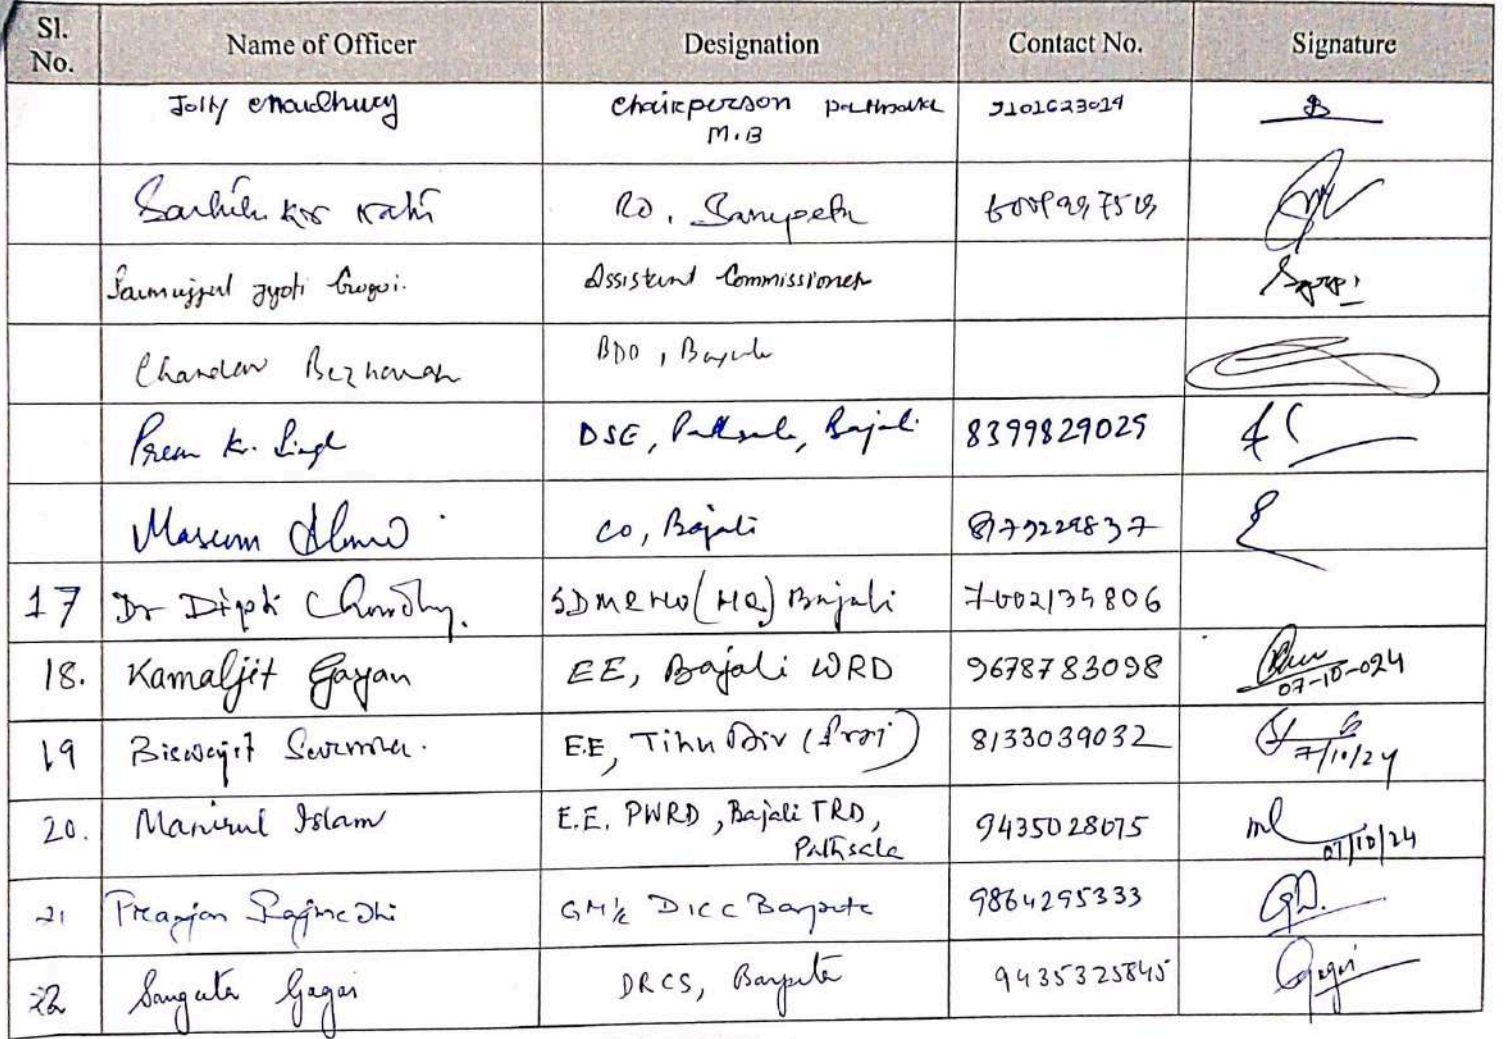 Sl. No. Name of Officer Designation Contact No. Signature
Jolly Choudhury Chairperson Pathsala 9101623014
M.B
Kr Nath RO, Sarupeta
Jyoti Gogoi. Assistant Commissioner
Chandan Bezbaruah BDO, Bajali
Prem Kr. Singh DSE, Pathsala, Bajali 8399829025
Masum Ahmed CO, Bajali
17 Dr Dipti Chowdhury. SDM&HO (HQ) Bajali 7002135806
18. Kamaljit Gayan EE, Bajali WRD 9678783098 07-10-024
19 Biswajit Sarma. E.E, Tihu Div (Irri) 8133039032 7/10/24
20. Manirul Islam E.E. PWRD, Bajali TRD, 9435028675 07/10/24
Pathsala
21 Pranjan GM i/c DICC Barpeta 9864295333
22 Sangeeta Gogoi DRCS, Barpeta 9435325845 Gogoi